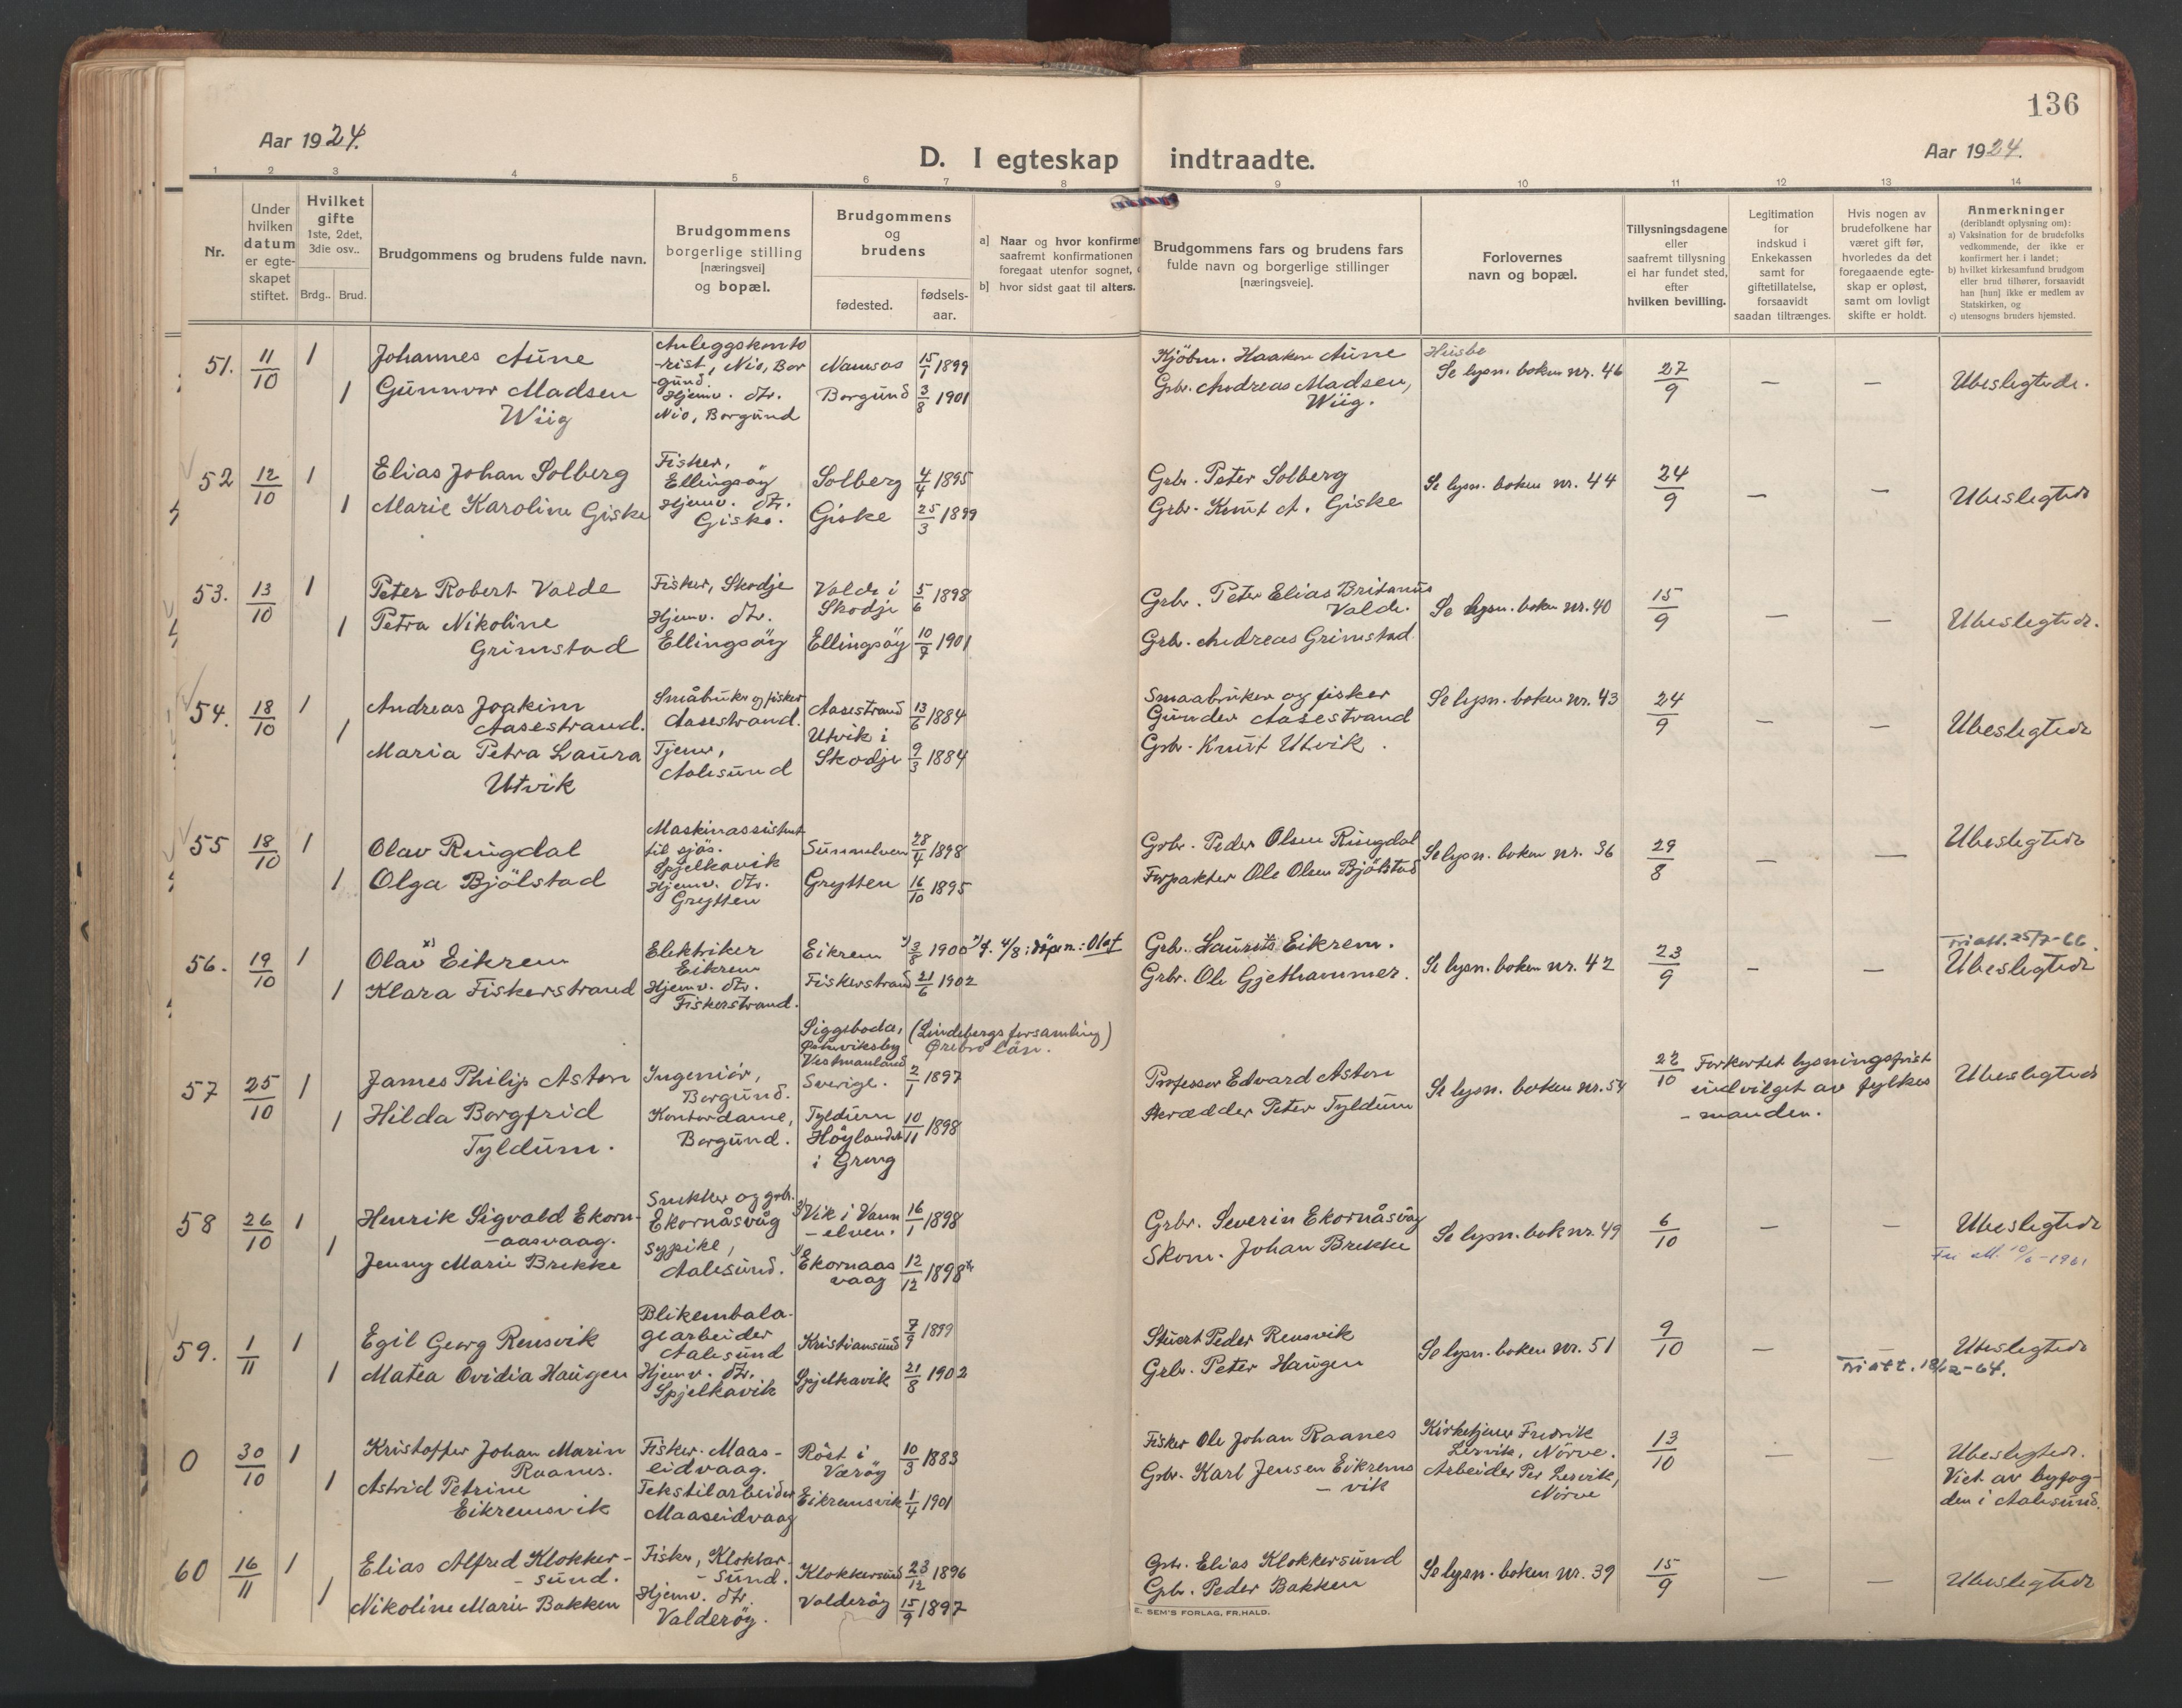 136
Aar 1924.
D. I egteskap indtraadte.
Aar 1924.
1 2 3 4 5 6 7 8 9 10 11 12 13 14
Nr.
Under
hvilken
datum
er egte-
skapet
stiftet.
Hvilket
gifte
1ste, 2det,
3die osv..
Brdg.. Brud.
Brudgommens og brudens fulde navn.
Brudgommens
borgerlige stilling
[næringsvei]
og bopæl.
Brudgommens
og
brudens
fødested.
fødsels-
aar.
a] Naar og hvor konfirmer
saafremt konfirmationen
foregaat utenfor sognet,
b] hvor sidst gaat til alters.
Brudgommens fars og brudens fars
fulde navn og borgerlige stillinger
[næringsveie].
Forlovernes
navn og bopæl.
Tillysningsdagene
eller
saafremt tillysning
ei har fundet sted,
efter
hvilken bevilling.
Legitimation
for
indskud i
Enkekassen
samt for
giftetillatelse,
forsaavidt
saadan tiltrænges.
Hvis nogen av
brudefolkene har
været gift før,
hvorledes da det
foregaaende egte-
skap er opløst,
samt om lovligt
skifte er holdt.
Anmerkninger
(deriblandt oplysning om):
a) Vaksination for de brudefolks
vedkommende, der ikke er
konfirmert her i landet;
b) hvilket kirkesamfund brudgom
eller brud tilhører, forsaavidt
han [hun] ikke er medlem av
Statskirken, og
c) utensogns bruders hjemsted.
51. 11/10 1 Johannes Aune
Anleggskonto
-rist, Nio, Bor
-gund.
Namsos 15/1 1899
Kjöbm. Haakon Aune
Husbe
Se lysn. boken nr. 46 27/9 — — Ubeslegtede.
1 Gunnvor Madsen
Wiig
Hjemv. dtr.
Nio, Borgund
Borgund 3/8 1901
Grbr. Andreas Madsen,
Wiig.
52 12/10 1 Elias Johan Solberg
Fisker,
Ellingsöy
Solberg 4/4 1895
Grbr. Peter Solberg
Se lysn. boken nr. 44 24/9 — — Ubeslegtede
1 Marie Karoline Giske
Hjemv. dtr.
Giske.
Giske 25/3 1899
Grbr. Knut A. Giske
53. 13/10 1 Peter Robert Valde
Fisker, Skodje
Valde i
Skodje
5/6 1898
Grbr. Peter Elias Britanus
Valde.
Se lysn. boken nr. 40 15/9 — — Ubeslegtede.
1 Petra Nikoline
Grimstad
Hjemv. dtr.
Ellingsöy
Ellingsöy 10/9 1901
Grbr. Andreas Grimstad.
54. 18/10 1 Andreas Joakim
Aasestrand.
Småbruker og fisker
Aasestrand.
Aasestrand 13/6 1884
Smaabruker og fisker
Gunder Aasestrand
Se lysn. boken nr. 43 24/9 — — Ubeslegtede
1 Maria Petra Laura
Utvik
Tjener,
Aalesund
Utvik i
Skodje
9/3 1884
Grbr. Knut Utvik.
55 18/10 1 Olav Ringdal
Maskinassistent
til sjös.
Spjelkavik
Sunnelven 28/4 1898
Grbr. Peder Olsen Ringdal
Se lysn. boken nr. 36 29/8 — — Ubeslegtede
1 Olga Bjölstad
Hjemv. dtr.
Grytten
Grytten 16/10 1895
Forpakter Ole Olsen Bjölstad
56. 19/10 1 Olav x) Eikrem
Elektriker
Eikrem
Eikrem x) 3/8 1900 x) f. 4/8; döpen.: Olaf
Grb. Laurits Eikrem.
Se lysn. boken nr. 42 23/9 — —
Tri att. 25/7-66.
Ubeslegtede
1 Klara Fiskerstrand
Hjemv. dtr.
Fiskerstrand.
Fiskerstrand 21/6 1902
Grbr. Ole Gjethammer.
57 25/10 1 James Philip Aston
Ingeniör,
Borgund.
Siggeboda, (Lindebergs forsamling)
Örebro län.
Vestmanland
Sverige.
2/1 1897
Professor Edvard Aston
Se lysn. boken nr. 54 22/10
Forkortet lysningsfrist
indvilget av fylkes
-manden.
Ubeslegtede
1 Hilda Borgfrid
Tyldum.
Kontordame,
Borgund.
Tyldum
Höylandet
i Grong
10/11 1898
Skrædder Peter Tyldum
58 26/10 1 Henrik Sigvald Ekorn-
-aasvaag.
Snekker og grb.
Ekornåsvåg
Vik i Vann
-elven.
16/1 1898
Grbr. Severin Ekornåsvåg
Se lysn. bok nr. 49 6/10 — — Ubeslegtede
1 Jenny Marie Brekke
Sypike,
Aalesund.
Ekornaas
vaag
12/12 1898
Skom. Johan Brekke
59. 1/11 1 Egil Georg Rensvik
Blikembala-
gearbeider
Aalesund
Kristiansund 7/9 1899
Stuert Peder Rensvik
Se lysn. boken nr. 51 9/10 — — Ubeslegtede
Tri att. 18/12-64.
1 Matea Ovidia Haugen
Hjemv. dtr.
Spjelkavik
Spjelkavik 21/8 1902
Grbr. Peter Haugen
0 30/10 1 Kristoffer Johan Marin
Raanes.
Fisker. Maas-
eidvaag.
Röst i
Væröy
10/3 1883
Fisker Ole Johan Raanes
Kirketjener Fredrik
Lervik, Nörve.
13/10 — — Ubeslegtede.
Viet av byfog-
den i Aalesund.
1 Astrid Petrine
Eikremsvik
Tekstilarbeider
Maaseidvaag
Eikremsvik 1/4 1901
Grbr. Karl Jensen Eikrems
-vik
Arbeider Per Lervik,
Nörve
60 16/11 1 Elias Alfred Klokker-
-sund.
Fisker, Klokker-
-sund.
Klokkersund 23/12 1896
Grbr. Elias Klokkersund
Se lysn. boken nr. 39 15/9 — — Ubeslegtede
1 Nikoline Marie Bakken
Hjemv. dtr.
Valderöy.
Valderöy 15/9 1897
Grbr. Peder Bakken
E. SEM'S FORLAG, FR.HALD.